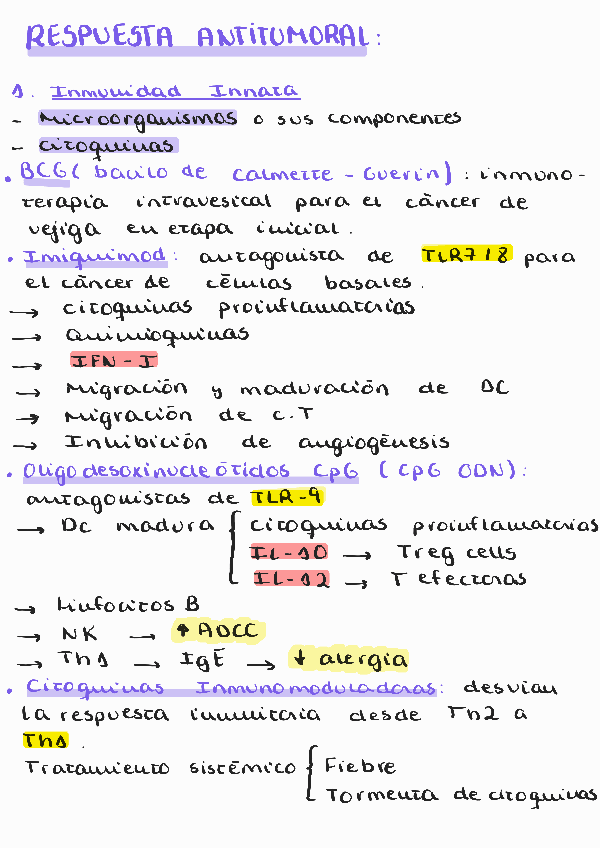 RESPUESTA ANTITUMORAL:
1. Inmunidad Innata
- Microorganismos o sus componentes
- Citoquinas
• BCG (bacilo de Calmette - Guerin) : inmuno-
terapia intravesical para el cáncer de
vejiga en etapa inicial.
• Imiquimod: antagonista de TLR718 para
el cáncer de células basales.
→ citoquinas proinflamatorias
→ Quimioquinas
→ IFN - I
→ Migración y maduración de DC
→ Migración de c.T
→ Inhibición de angiogénesis
• Oligodesoxinucleótidos CpG (CpG ODN):
antagonistas de TLR-9
→ Dc madura { citoquinas proinflamatorias
IL-10 → Treg cells
IL-12 → T efectoras
→ Linfocitos B
→ NK → ↑ ADCC
→ Th1 → IgE → ↓ alergia
• Citoquinas Inmunomoduladoras: desvian
la respuesta inmitaria desde Th2 a
Th1.
Tratamiento sistémico { Fiebre
Tormenta de citoquinas